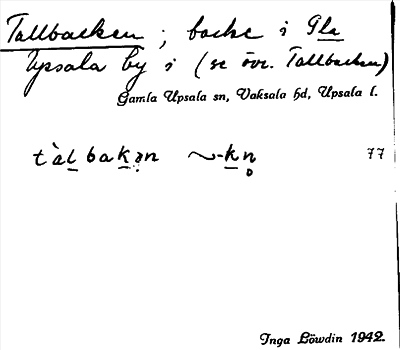 Tallbacken ; backe i Gla
Upsala by i (se övr. Tallbacken)
Gamla Upsala sn, Vaksala hd, Upsala l.
tàlbakən ~-kn̥ 77
Inga Löwdin 1942.